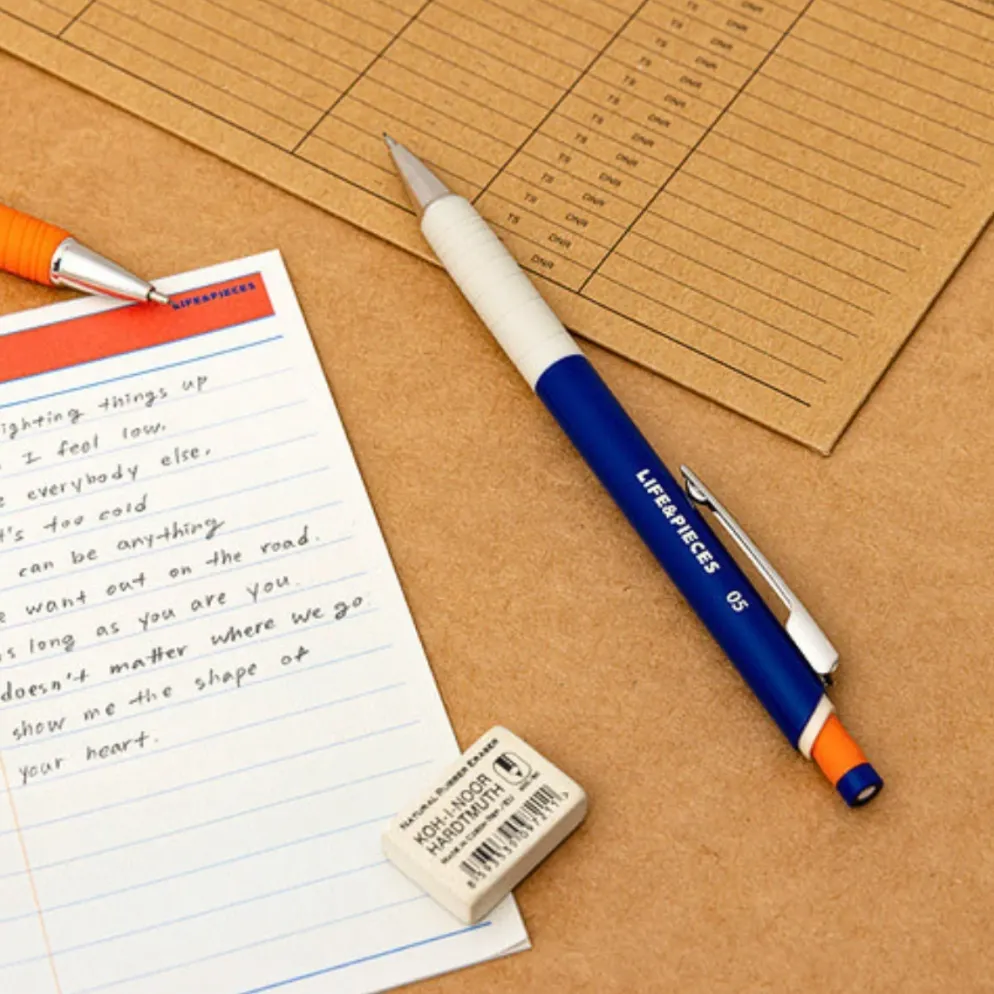 TS DNR
TS DNR
TS DNR
TS DNR
TS DNR
TS DNR
TS DNR
TS DNR
TS DNR
TS DNR
DNR
LIFE&PIECES
ighting things up
I feel low.
everybody else.
t's too cold
can be anything
want out on the road.
s long as you are you.
doesn't matter where we go.
show me the shape of
your heart.
LIFE&PIECES 05
NATURAL RUBBER ERASER
KOH-I-NOOR
HARDTMUTH